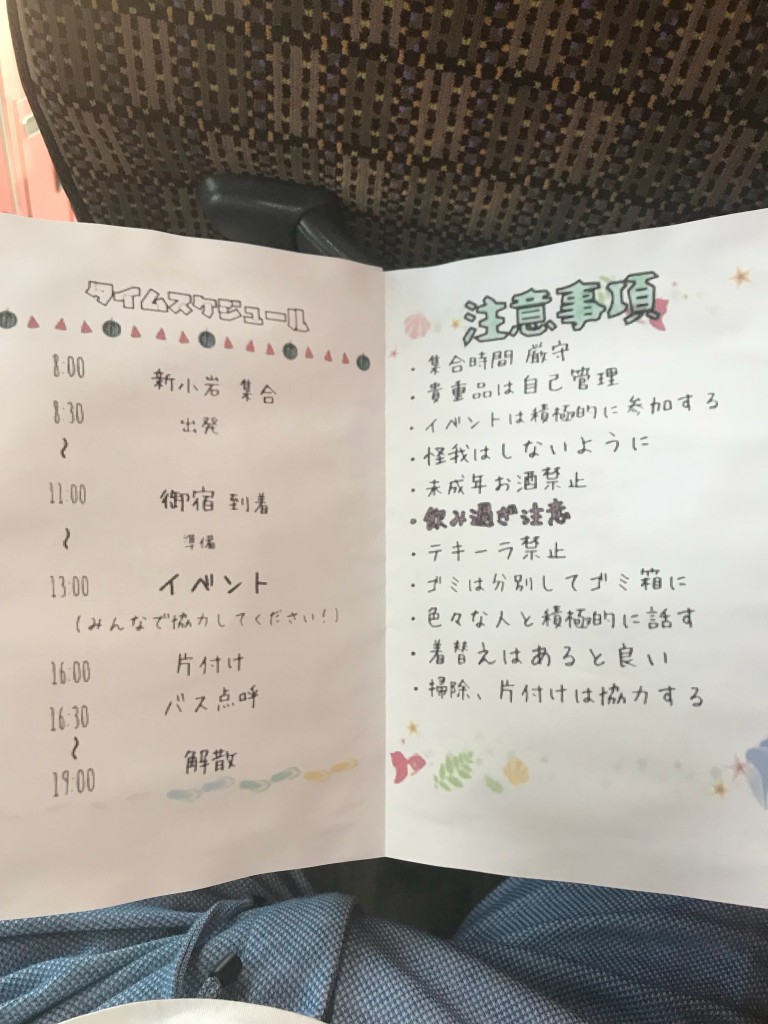 タイムスケジュール
8:00 新小岩 集合
8:30 出発
〜
11:00 御宿 到着
〜 準備
13:00 イベント
(みんなで協力してください!)
16:00 片付け
16:30 バス点呼
〜
19:00 解散
注意事項
・集合時間 厳守
・貴重品は自己管理
・イベントは積極的に参加する
・怪我はしないように
・未成年お酒禁止
・飲み過ぎ注意
・テキーラ禁止
・ゴミは分別してゴミ箱に
・色々な人と積極的に話す
・着替えはあると良い
・掃除、片付けは協力する